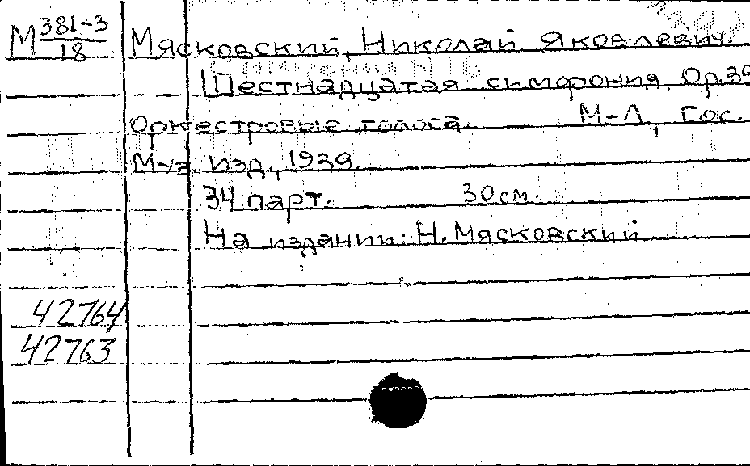 М 381-3/18 Мясковский, Николай Яковлевич.
Шестнадцатая симфония. Op.39
Оркестровые голоса. М-Л, Гос.
Муз изд., 1939.
34 парт. 30 см.
На издании: Н. Мясковский
42764
42763